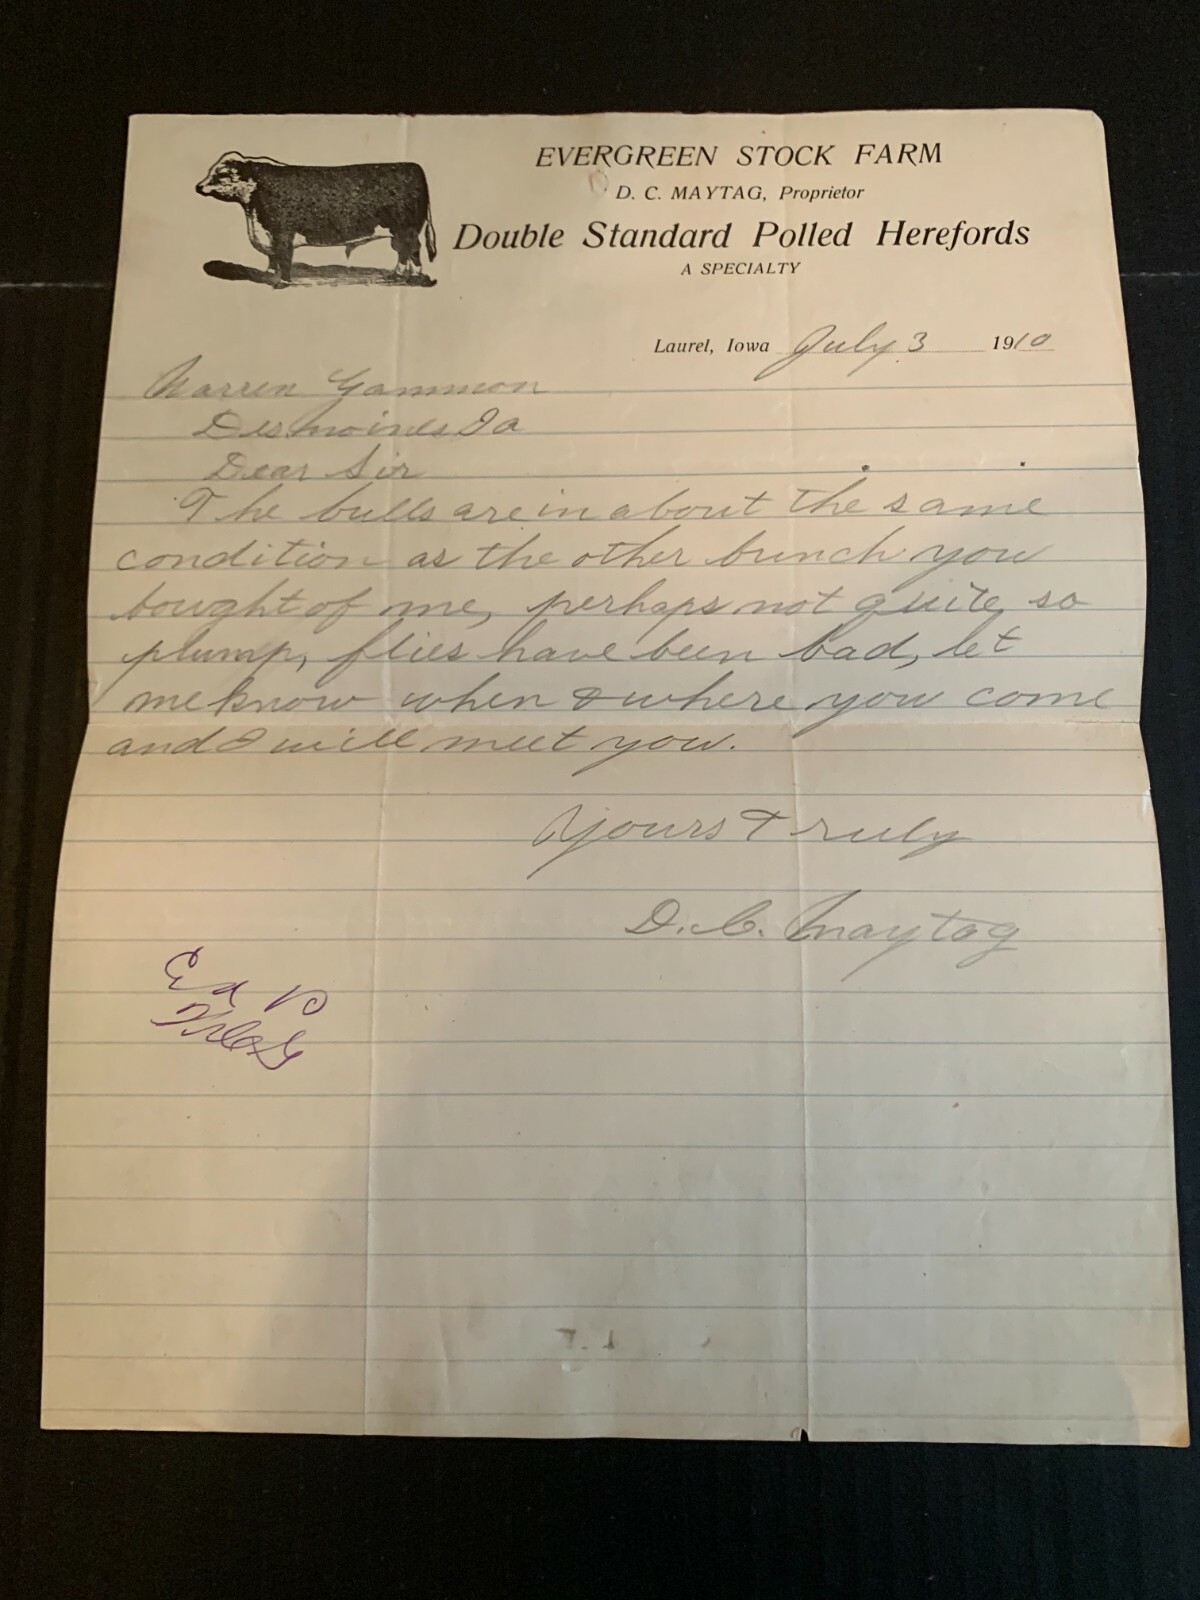 EVERGREEN STOCK FARM
D. C. MAYTAG, Proprietor
Double Standard Polled Herefords
A SPECIALTY
Laurel, Iowa July 3 1910
Warren Gammon
Desmoines Ia
Dear Sir
The bulls are in about the same
condition as the other bunch you
bought of me, perhaps not quite so
plump, flies have been bad, let
me know when & where you come
and I will meet you.
Yours Truly
D. C. Maytag